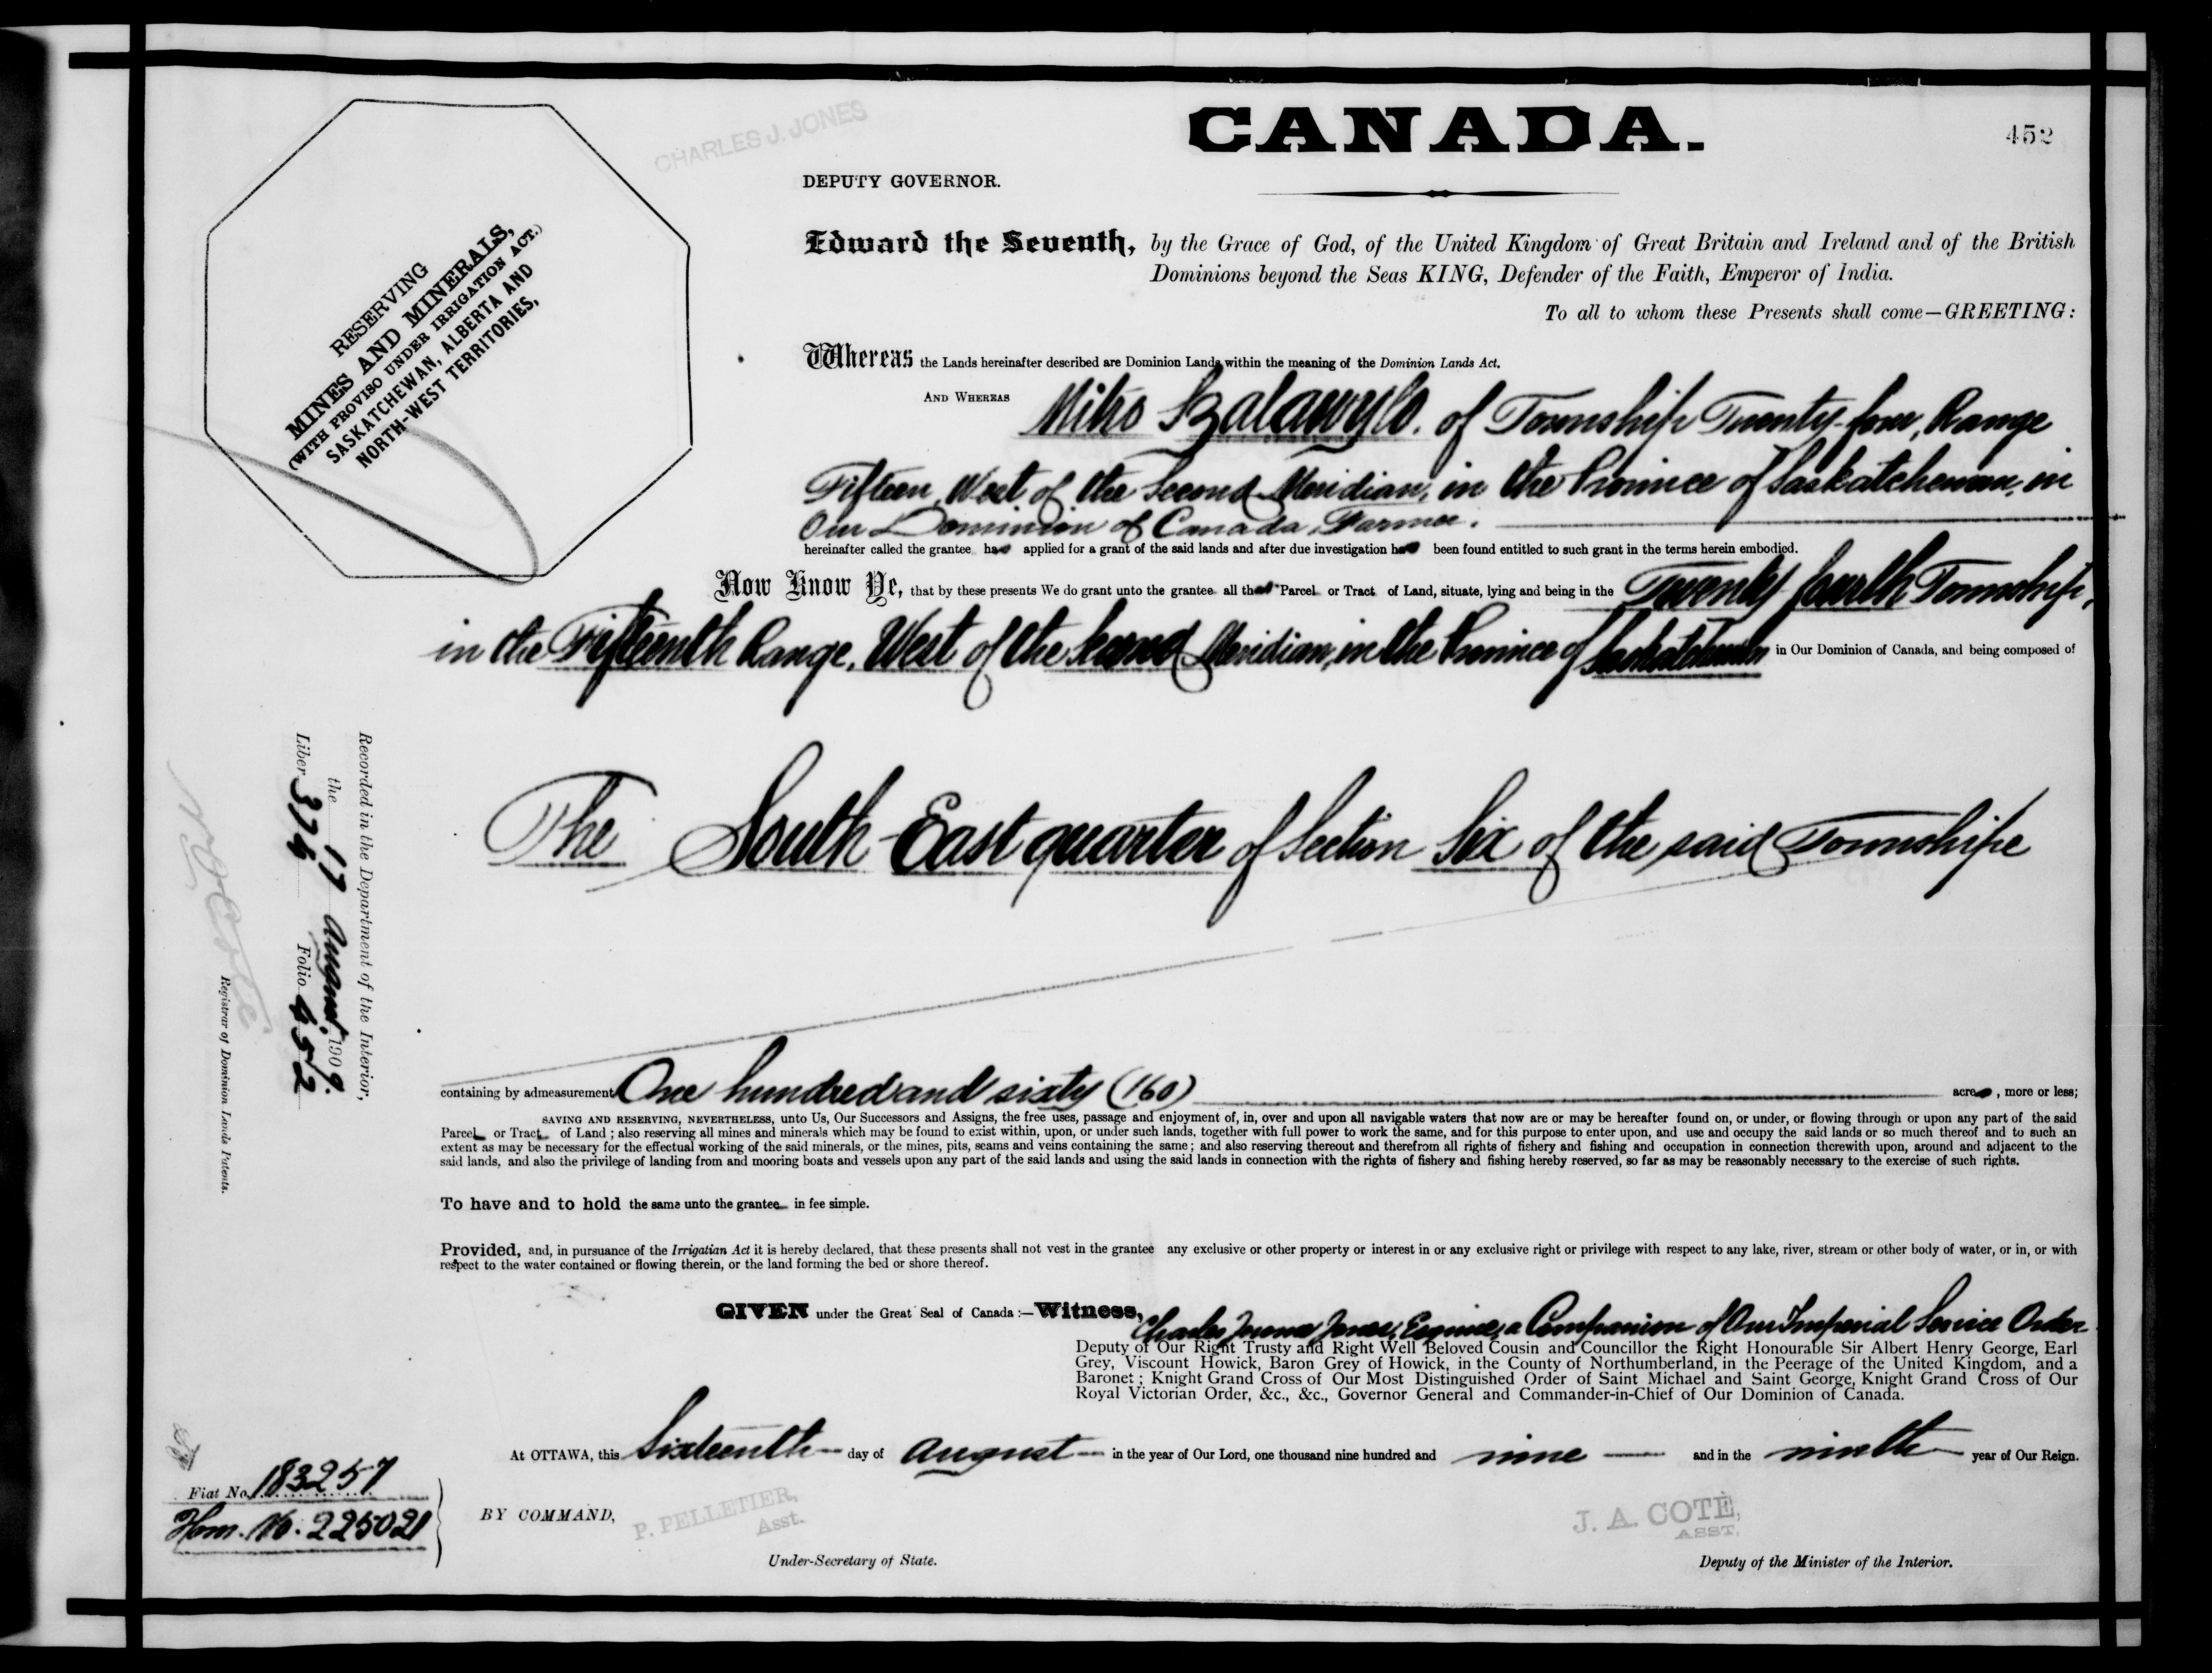 CANADA.
452
CHARLES J. JONES
DEPUTY GOVERNOR.
RESERVING
MINES AND MINERALS,
(WITH PROVISO UNDER IRRIGATION ACT.)
SASKATCHEWAN, ALBERTA AND
NORTH-WEST TERRITORIES,
Edward the Seventh, by the Grace of God, of the United Kingdom of Great Britain and Ireland and of the British
Dominions beyond the Seas KING, Defender of the Faith, Emperor of India.
To all to whom these Presents shall come—GREETING:
Whereas the Lands hereinafter described are Dominion Lands within the meaning of the Dominion Lands Act.
AND WHEREAS of Township Twenty-four, Range
Fifteen, West of the Second Meridian, in the Province of Saskatchewan, in
Our Dominion of Canada, Farmer.
hereinafter called the grantee has applied for a grant of the said lands and after due investigation has been found entitled to such grant in the terms herein embodied.
Now Know Ye, that by these presents We do grant unto the grantee all that Parcel or Tract of Land, situate, lying and being in the Twenty-fourth Township,
in the Fifteenth Range, West of the Second Meridian, in the Province of Saskatchewan in Our Dominion of Canada, and being composed of
The South-East quarter of Section Six of the said Township
containing by admeasurement One hundred and sixty (160) acres, more or less;
SAVING AND RESERVING, NEVERTHELESS, unto Us, Our Successors and Assigns, the free uses, passage and enjoyment of, in, over and upon all navigable waters that now are or may be hereafter found on, or under, or flowing through or upon any part of the said
Parcel or Tract of Land ; also reserving all mines and minerals which may be found to exist within, upon, or under such lands, together with full power to work the same, and for this purpose to enter upon, and use and occupy the said lands or so much thereof and to such an
extent as may be necessary for the effectual working of the said minerals, or the mines, pits, seams and veins containing the same ; and also reserving thereout and therefrom all rights of fishery and fishing and occupation in connection therewith upon, around and adjacent to the
said lands, and also the privilege of landing from and mooring boats and vessels upon any part of the said lands and using the said lands in connection with the rights of fishery and fishing hereby reserved, so far as may be reasonably necessary to the exercise of such rights.
To have and to hold the same unto the grantee in fee simple.
Provided, and, in pursuance of the Irrigatian Act it is hereby declared, that these presents shall not vest in the grantee any exclusive or other property or interest in or any exclusive right or privilege with respect to any lake, river, stream or other body of water, or in, or with
respect to the water contained or flowing therein, or the land forming the bed or shore thereof.
GIVEN under the Great Seal of Canada :—Witness,
Charles Jones, Esquire, a Companion of Our Imperial Service Order
Deputy of Our Right Trusty and Right Well Beloved Cousin and Councillor the Right Honourable Sir Albert Henry George, Earl
Grey, Viscount Howick, Baron Grey of Howick, in the County of Northumberland, in the Peerage of the United Kingdom, and a
Baronet ; Knight Grand Cross of Our Most Distinguished Order of Saint Michael and Saint George, Knight Grand Cross of Our
Royal Victorian Order, &c., &c., Governor General and Commander-in-Chief of Our Dominion of Canada.
At OTTAWA, this Sixteenth day of August in the year of Our Lord, one thousand nine hundred and nine and in the ninth year of Our Reign.
BY COMMAND,
P. PELLETIER,
Asst.
Under-Secretary of State.
J. A. COTÉ,
ASST.
Deputy of the Minister of the Interior.
Recorded in the Department of the Interior,
the 17 August 1909.
Liber 374 Folio 452
Registrar of Dominion Lands Patents.
Fiat No. 183257
Hom. No. 225021